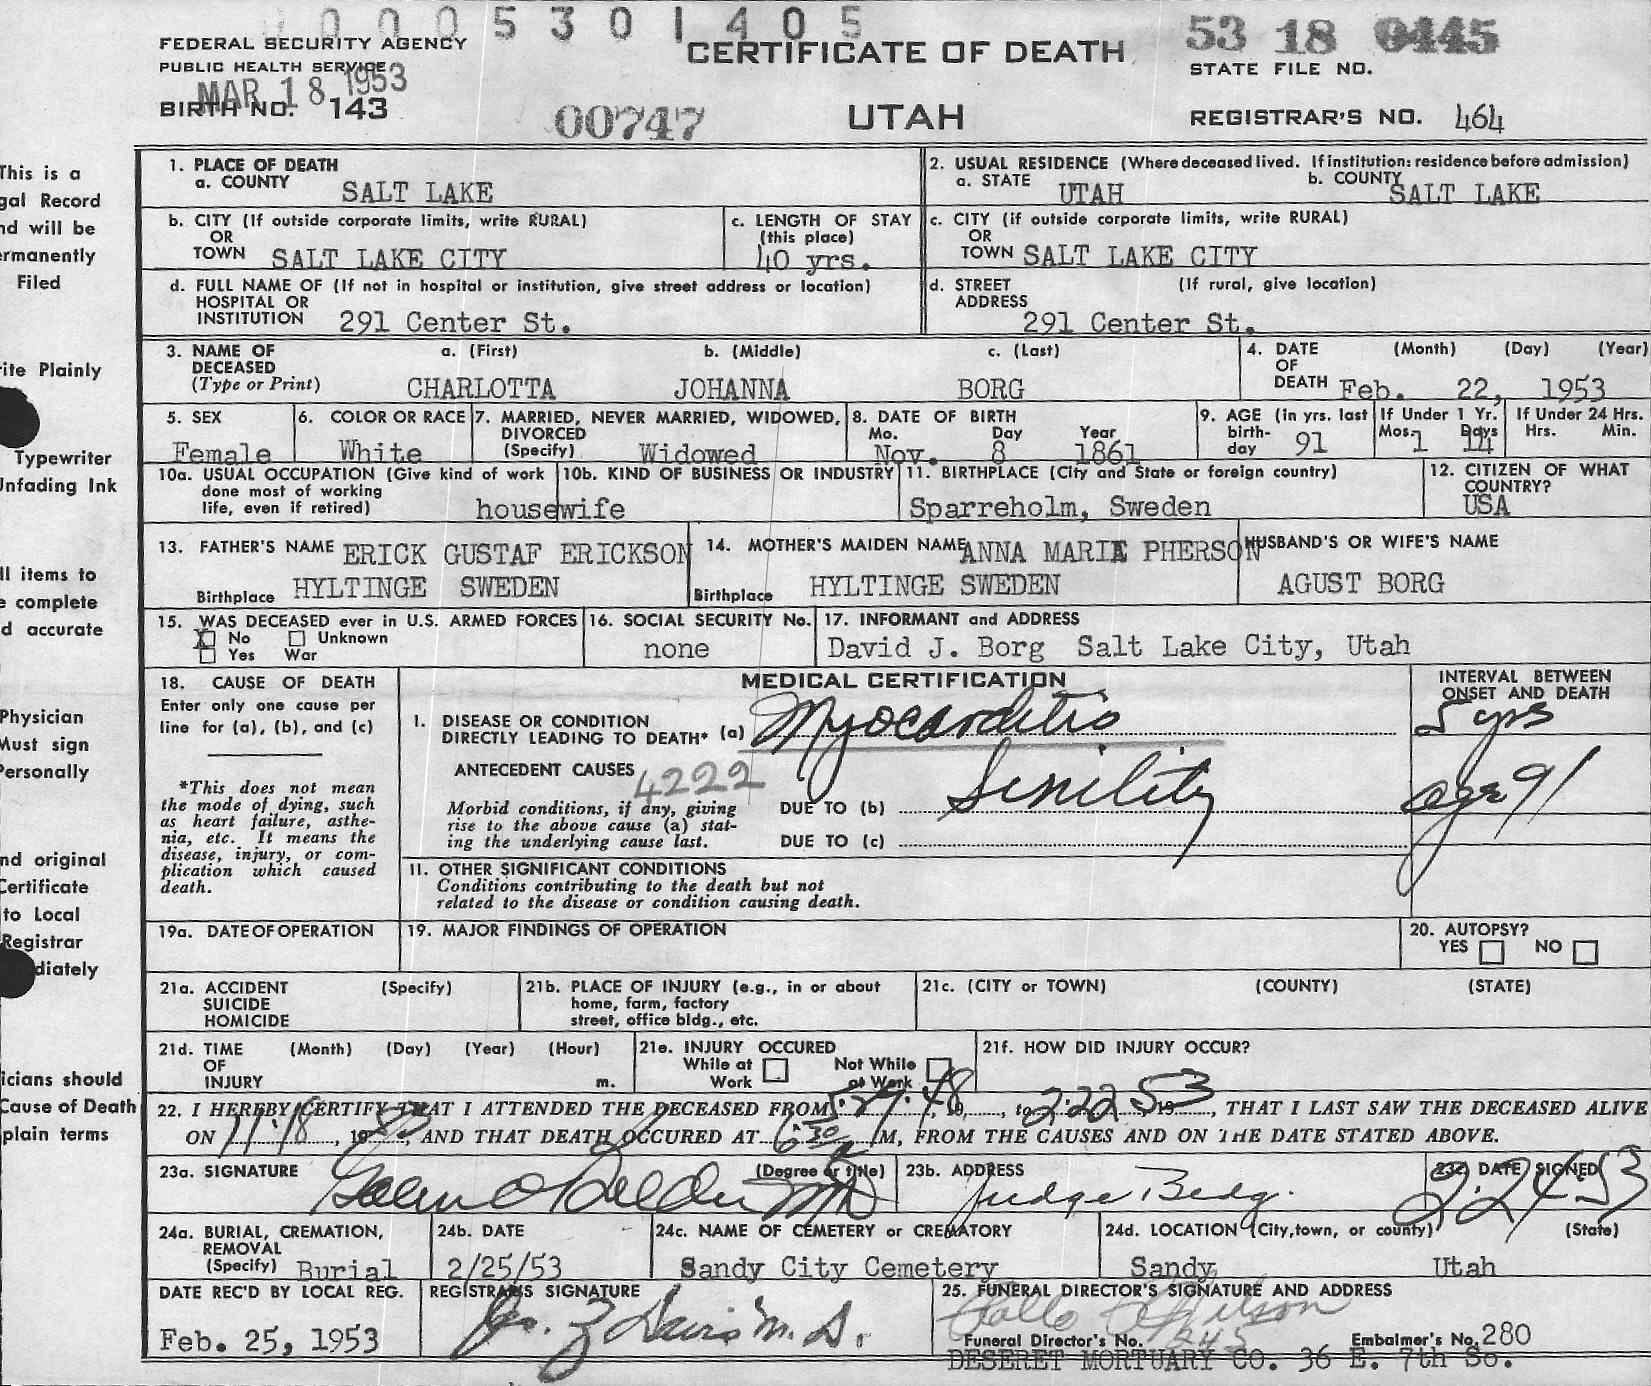 0 0 0 5 3 0 1 4 0 5
FEDERAL SECURITY AGENCY
PUBLIC HEALTH SERVICE
MAR 18 1953
BIRTH NO. 143
00747
CERTIFICATE OF DEATH
UTAH
53 18 0445
STATE FILE NO.
REGISTRAR'S NO. 464
This is a
gal Record
nd will be
rmanently
Filed
rite Plainly
Typewriter
Unfading Ink
ll items to
e complete
d accurate
Physician
Must sign
Personally
nd original
Certificate
to Local
Registrar
diately
icians should
Cause of Death
plain terms
1. PLACE OF DEATH
a. COUNTY SALT LAKE
2. USUAL RESIDENCE (Where deceased lived. If institution: residence before admission)
a. STATE UTAH b. COUNTY SALT LAKE
b. CITY (If outside corporate limits, write RURAL)
OR
TOWN SALT LAKE CITY
c. LENGTH OF STAY
(this place)
40 yrs.
c. CITY (if outside corporate limits, write RURAL)
OR
TOWN SALT LAKE CITY
d. FULL NAME OF (If not in hospital or institution, give street address or location)
HOSPITAL OR
INSTITUTION 291 Center St.
d. STREET (If rural, give location)
ADDRESS
291 Center St.
3. NAME OF DECEASED
(Type or Print)
a. (First) b. (Middle) c. (Last)
CHARLOTTA JOHANNA BORG
4. DATE OF DEATH (Month) (Day) (Year)
Feb. 22, 1953
5. SEX
Female
6. COLOR OR RACE
White
7. MARRIED, NEVER MARRIED, WIDOWED,
DIVORCED
(Specify) Widowed
8. DATE OF BIRTH
Mo. Day Year
Nov. 8 1861
9. AGE (in yrs. last
birth-
day 91
If Under 1 Yr.
Mos. 1 Days 14
If Under 24 Hrs.
Hrs. Min.
10a. USUAL OCCUPATION (Give kind of work
done most of working
life, even if retired) housewife
10b. KIND OF BUSINESS OR INDUSTRY
11. BIRTHPLACE (City and State or foreign country)
Sparreholm, Sweden
12. CITIZEN OF WHAT
COUNTRY?
USA
13. FATHER'S NAME ERICK GUSTAF ERICKSON
Birthplace HYLTINGE SWEDEN
14. MOTHER'S MAIDEN NAME ANNA MARIE PHERSON
Birthplace HYLTINGE SWEDEN
HUSBAND'S OR WIFE'S NAME
AGUST BORG
15. WAS DECEASED ever in U.S. ARMED FORCES
X No Unknown
Yes War
16. SOCIAL SECURITY No.
none
17. INFORMANT and ADDRESS
David J. Borg Salt Lake City, Utah
18. CAUSE OF DEATH
Enter only one cause per
line for (a), (b), and (c)
*This does not mean
the mode of dying, such
as heart failure, asthe-
nia, etc. It means the
disease, injury, or com-
plication which caused
death.
MEDICAL CERTIFICATION
INTERVAL BETWEEN
ONSET AND DEATH
I. DISEASE OR CONDITION
DIRECTLY LEADING TO DEATH* (a) Myocarditis 5 yrs
ANTECEDENT CAUSES 4222
Morbid conditions, if any, giving
rise to the above cause (a) stat-
ing the underlying cause last.
DUE TO (b) Senility age 91
DUE TO (c)
11. OTHER SIGNIFICANT CONDITIONS
Conditions contributing to the death but not
related to the disease or condition causing death.
19a. DATE OF OPERATION
19. MAJOR FINDINGS OF OPERATION
20. AUTOPSY?
YES NO
21a. ACCIDENT (Specify)
SUICIDE
HOMICIDE
21b. PLACE OF INJURY (e.g., in or about
home, farm, factory
street, office bldg., etc.
21c. (CITY or TOWN) (COUNTY) (STATE)
21d. TIME (Month) (Day) (Year) (Hour)
OF
INJURY m.
21e. INJURY OCCURED
While at Work
Not While at Work
21f. HOW DID INJURY OCCUR?
22. I HEREBY CERTIFY THAT I ATTENDED THE DECEASED FROM 48, 19, to 2.22 53, 19, THAT I LAST SAW THE DECEASED ALIVE
ON 11.18, 19, AND THAT DEATH OCCURED AT 6:30 M, FROM THE CAUSES AND ON THE DATE STATED ABOVE.
23a. SIGNATURE (Degree or title)
MD
23b. ADDRESS
Judge Bldg.
23c. DATE SIGNED
2.24.53
24a. BURIAL, CREMATION,
REMOVAL
(Specify) Burial
24b. DATE
2/25/53
24c. NAME OF CEMETERY or CREMATORY
Sandy City Cemetery
24d. LOCATION (City, town, or county) (State)
Sandy Utah
DATE REC'D BY LOCAL REG.
Feb. 25, 1953
REGISTRARS SIGNATURE
Davis M.D.
25. FUNERAL DIRECTOR'S SIGNATURE AND ADDRESS
Wilson
Funeral Director's No. Embalmer's No. 280
DESERET MORTUARY CO. 36 E. 7th So.